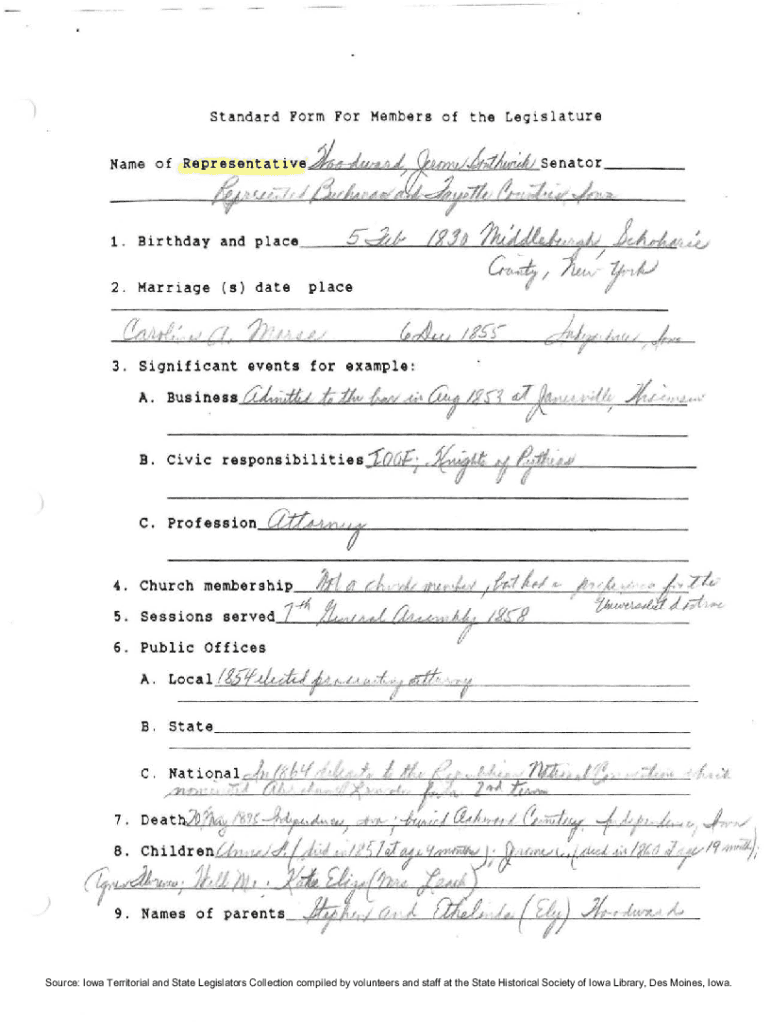 Standard Form For Members of the Legislature
Name of Representative Woodward, Jerome Southwick Senator
Represented Buchanan and Fayette Counties Iowa
1. Birthday and place 5 Feb 1830 Middleburgh, Schoharie
County, New York
2. Marriage (s) date place
Caroline A. Morse 6 Dec 1855 Independence, Iowa
3. Significant events for example:
A. Business Admitted to the bar in Aug 1853 at Janesville, Wisconsin
B. Civic responsibilities IOOF; Knights of Pythias
C. Profession Attorney
4. Church membership Not a church member, but had a preference for the
Universalist doctrine
5. Sessions served 7th General Assembly 1858
6. Public Offices
A. Local 1854 elected prosecuting attorney
B. State
C. National In 1864 delegate to the Republican National Convention which
nominated Abraham Lincoln for his 2nd term
7. Death May 1895 Independence, Iowa; buried Oakwood Cemetery, Independence, Iowa
8. Children Anna (died in 1857 at age 4 months); Jerome (died in 1860 at age 19 months);
Will M.; Kate Eliza (Mrs. Leach)
9. Names of parents Stephen and Ethelinda (Ely) Woodward
Source: Iowa Territorial and State Legislators Collection compiled by volunteers and staff at the State Historical Society of Iowa Library, Des Moines, Iowa.